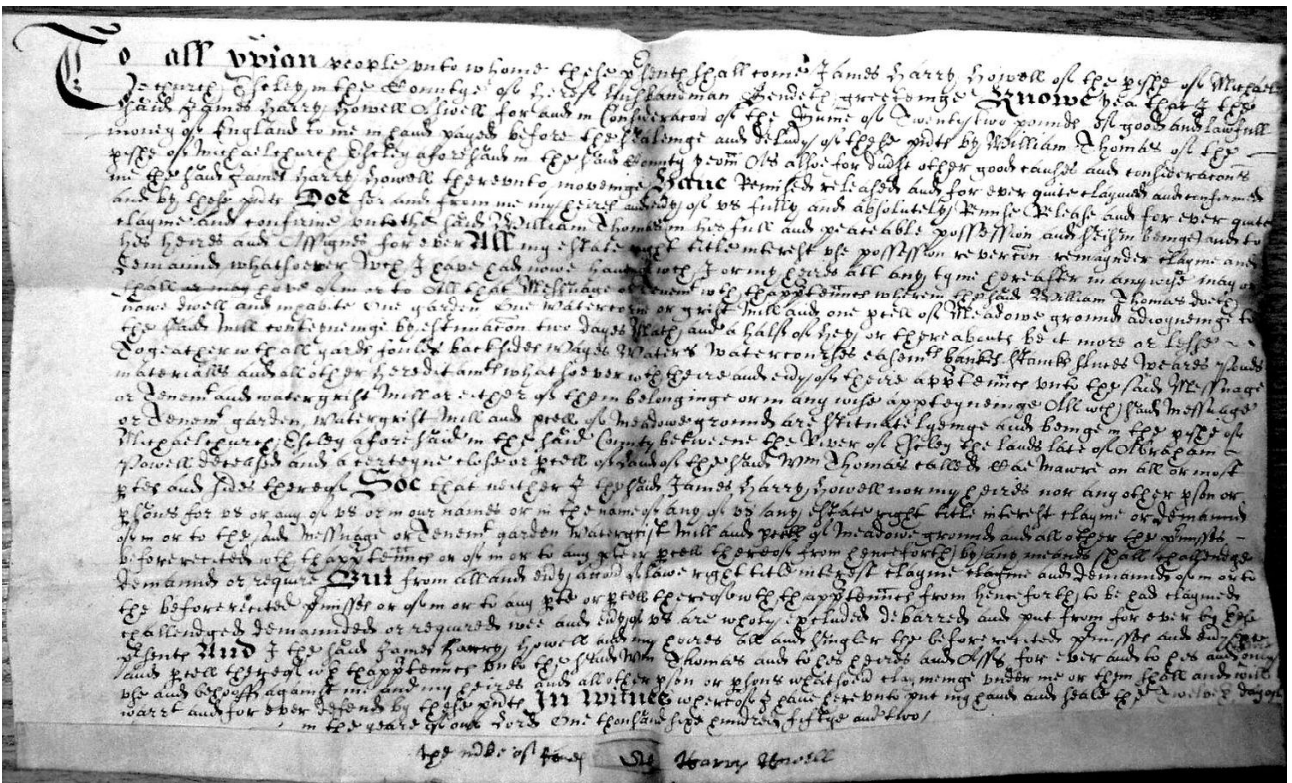 To all xpian people unto whome these psents shall come James Harry Howell of the pishe of Michael
church Escley in the Countye of Heref husbandman Sendeth greetinge Knowe yea that I the
said James Harry Howell Aswell for and in Consideracon of the Sume of Twenty two pounds of good and lawfull
money of England to me in hand payed before the sealinge and delivy of these psents by William Thomas of the
pishe of Michaelchurch Escley aforesaid in the said County yeom As allsoe for divse other good causes and consideracons
me the said James Harry Howell thereunto moveinge Have Remised released and for ever quite claymed and confirmed
and by these psents Doe for and from me my heires and evy of us fully and absolutely Remise Release and for ever quite
clayme and confirme unto the said William Thomas in his full and peaceable possession and seisin beinge and to
his heires and Assignes for ever All my estate right title interest use possession revercon remaynder clayme and
demaund whatsoever wch I have had nowe have or wch I or my heires att any tyme hereafter in any wise may or
shall or may have of in or to All that Messuage or Tenemt wth thapptennces wherein the said William Thomas doeth
nowe dwell and inhabite One garden One Watercorne or grist Mill and one pcell of Meadowe ground adioyneinge to
the said Mill conteyneinge by estimacon two dayes Math and a halfe of hey or thereabouts be it more or lesse
Togeather wth all yards foulds backsides Wayes Waters Watercourses easemts bankes stankes sluces Weares ponds
materialls and all other hereditamts whatsoever wth theire and evy of theire apptennces unto the said Messuage
or Tenemt and watergrist Mill or either of them belonginge or in any wise apperteyneinge All wch said Messuage
or Tenemt garden Watergrist Mill and pcell of Meadowe ground are scituate lyeinge and beinge in the pishe of
Michaelchurch Escley aforesaid in the said County betweene the River of Escley the lands late of Abraham
Powell deceased and a certeyne close or pcell of land of the said Wm Thomas called Cae Mawre on all or most
ptes and sides thereof Soe that neither I the said James Harry Howell nor my heires nor any other pson or
psons for us or any of us or in our names or in the name of any of us any estate right title interest clayme or demaund
of in or to the said Messuage or Tenemt garden Watergrist Mill and pcell of Meadowe ground and all other the pmisses
beforerecited wth thapptennces or of in or to any pte or pcell thereof from henceforth by any meanes shall challenge
demaund or require But from all and evy accon of lawe right title interest clayme clayme and demaund of in or to
the beforerecited pmisses or of in or to any pte or pcell thereof wth thapptennces from henceforth to be had claymed
challendged demaunded or required wee and evy of us are wholy excluded debarred and put from for ever by these
psents And I the said James Harry Howell and my heires all and singler the beforerecited pmisses and evy pte
and pcell thereof wth thapptennces unto the said Wm Thomas and to his heires and Asss for ever and to his and only
use and behooffe against me and my heires and all other pson or psons whatsoevr claymeinge under me or them shall and will
warrt and for ever defend by these psents In Witnes whereof I have hereunto put my hand and seale the Twelveth day of
in the yeare of our Lord One thousand sixe hundred fiftye and two
the mke of James Harry Howell